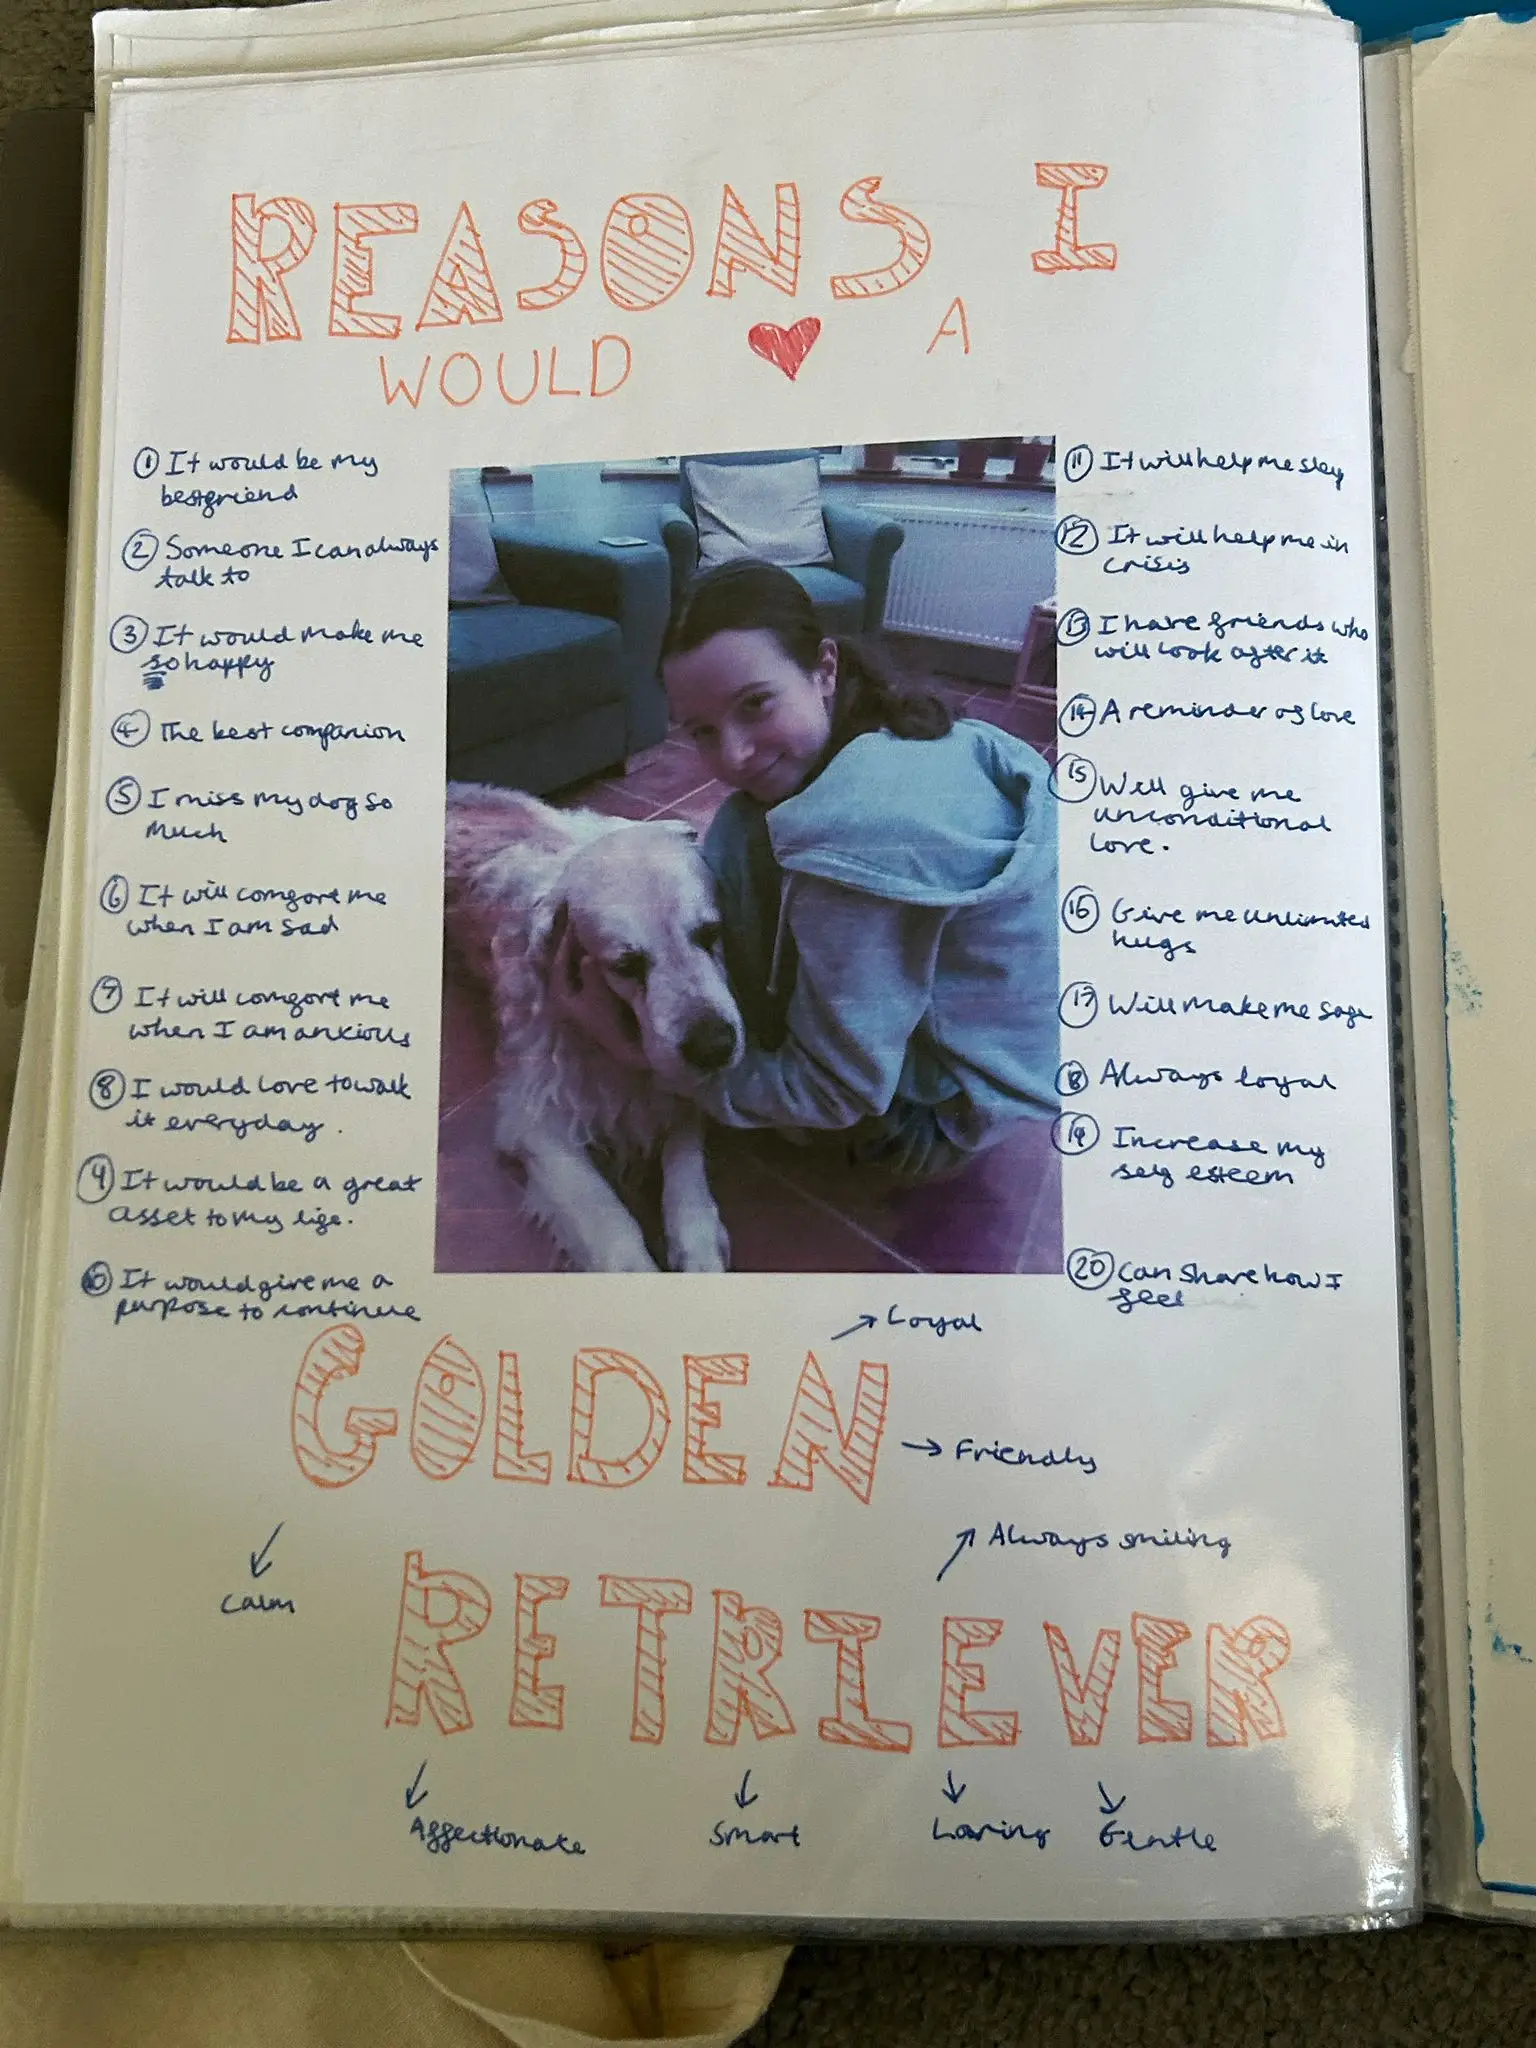 REASONS I
WOULD ❤ A
① It would be my
bestfriend
② Someone I can always
talk to
③ It would make me
so happy
④ The best companion
⑤ I miss my dog so
much
⑥ It will comfort me
when I am sad
⑦ It will comfort me
when I am anxious
⑧ I would love to walk
it everyday.
9 It would be a great
asset to my life.
⑩ It would give me a
purpose to continue
⑪ It will help me
⑫ It will help me in
crisis
⑬ I have friends who
will look after it
⑭ A reminder of love
⑮ Will give me
unconditional
love.
⑯ Give me unlimited
hugs
⑰ Will make me safe
⑱ Always loyal
⑲ Increase my
self esteem
⑳ Can share how I
feel
→ Loyal
GOLDEN
→ Friendly
↗ Always smiling
↙ Calm
RETRIEVER
↙ Affectionate
↓ Smart
↓ Loving
↘ Gentle